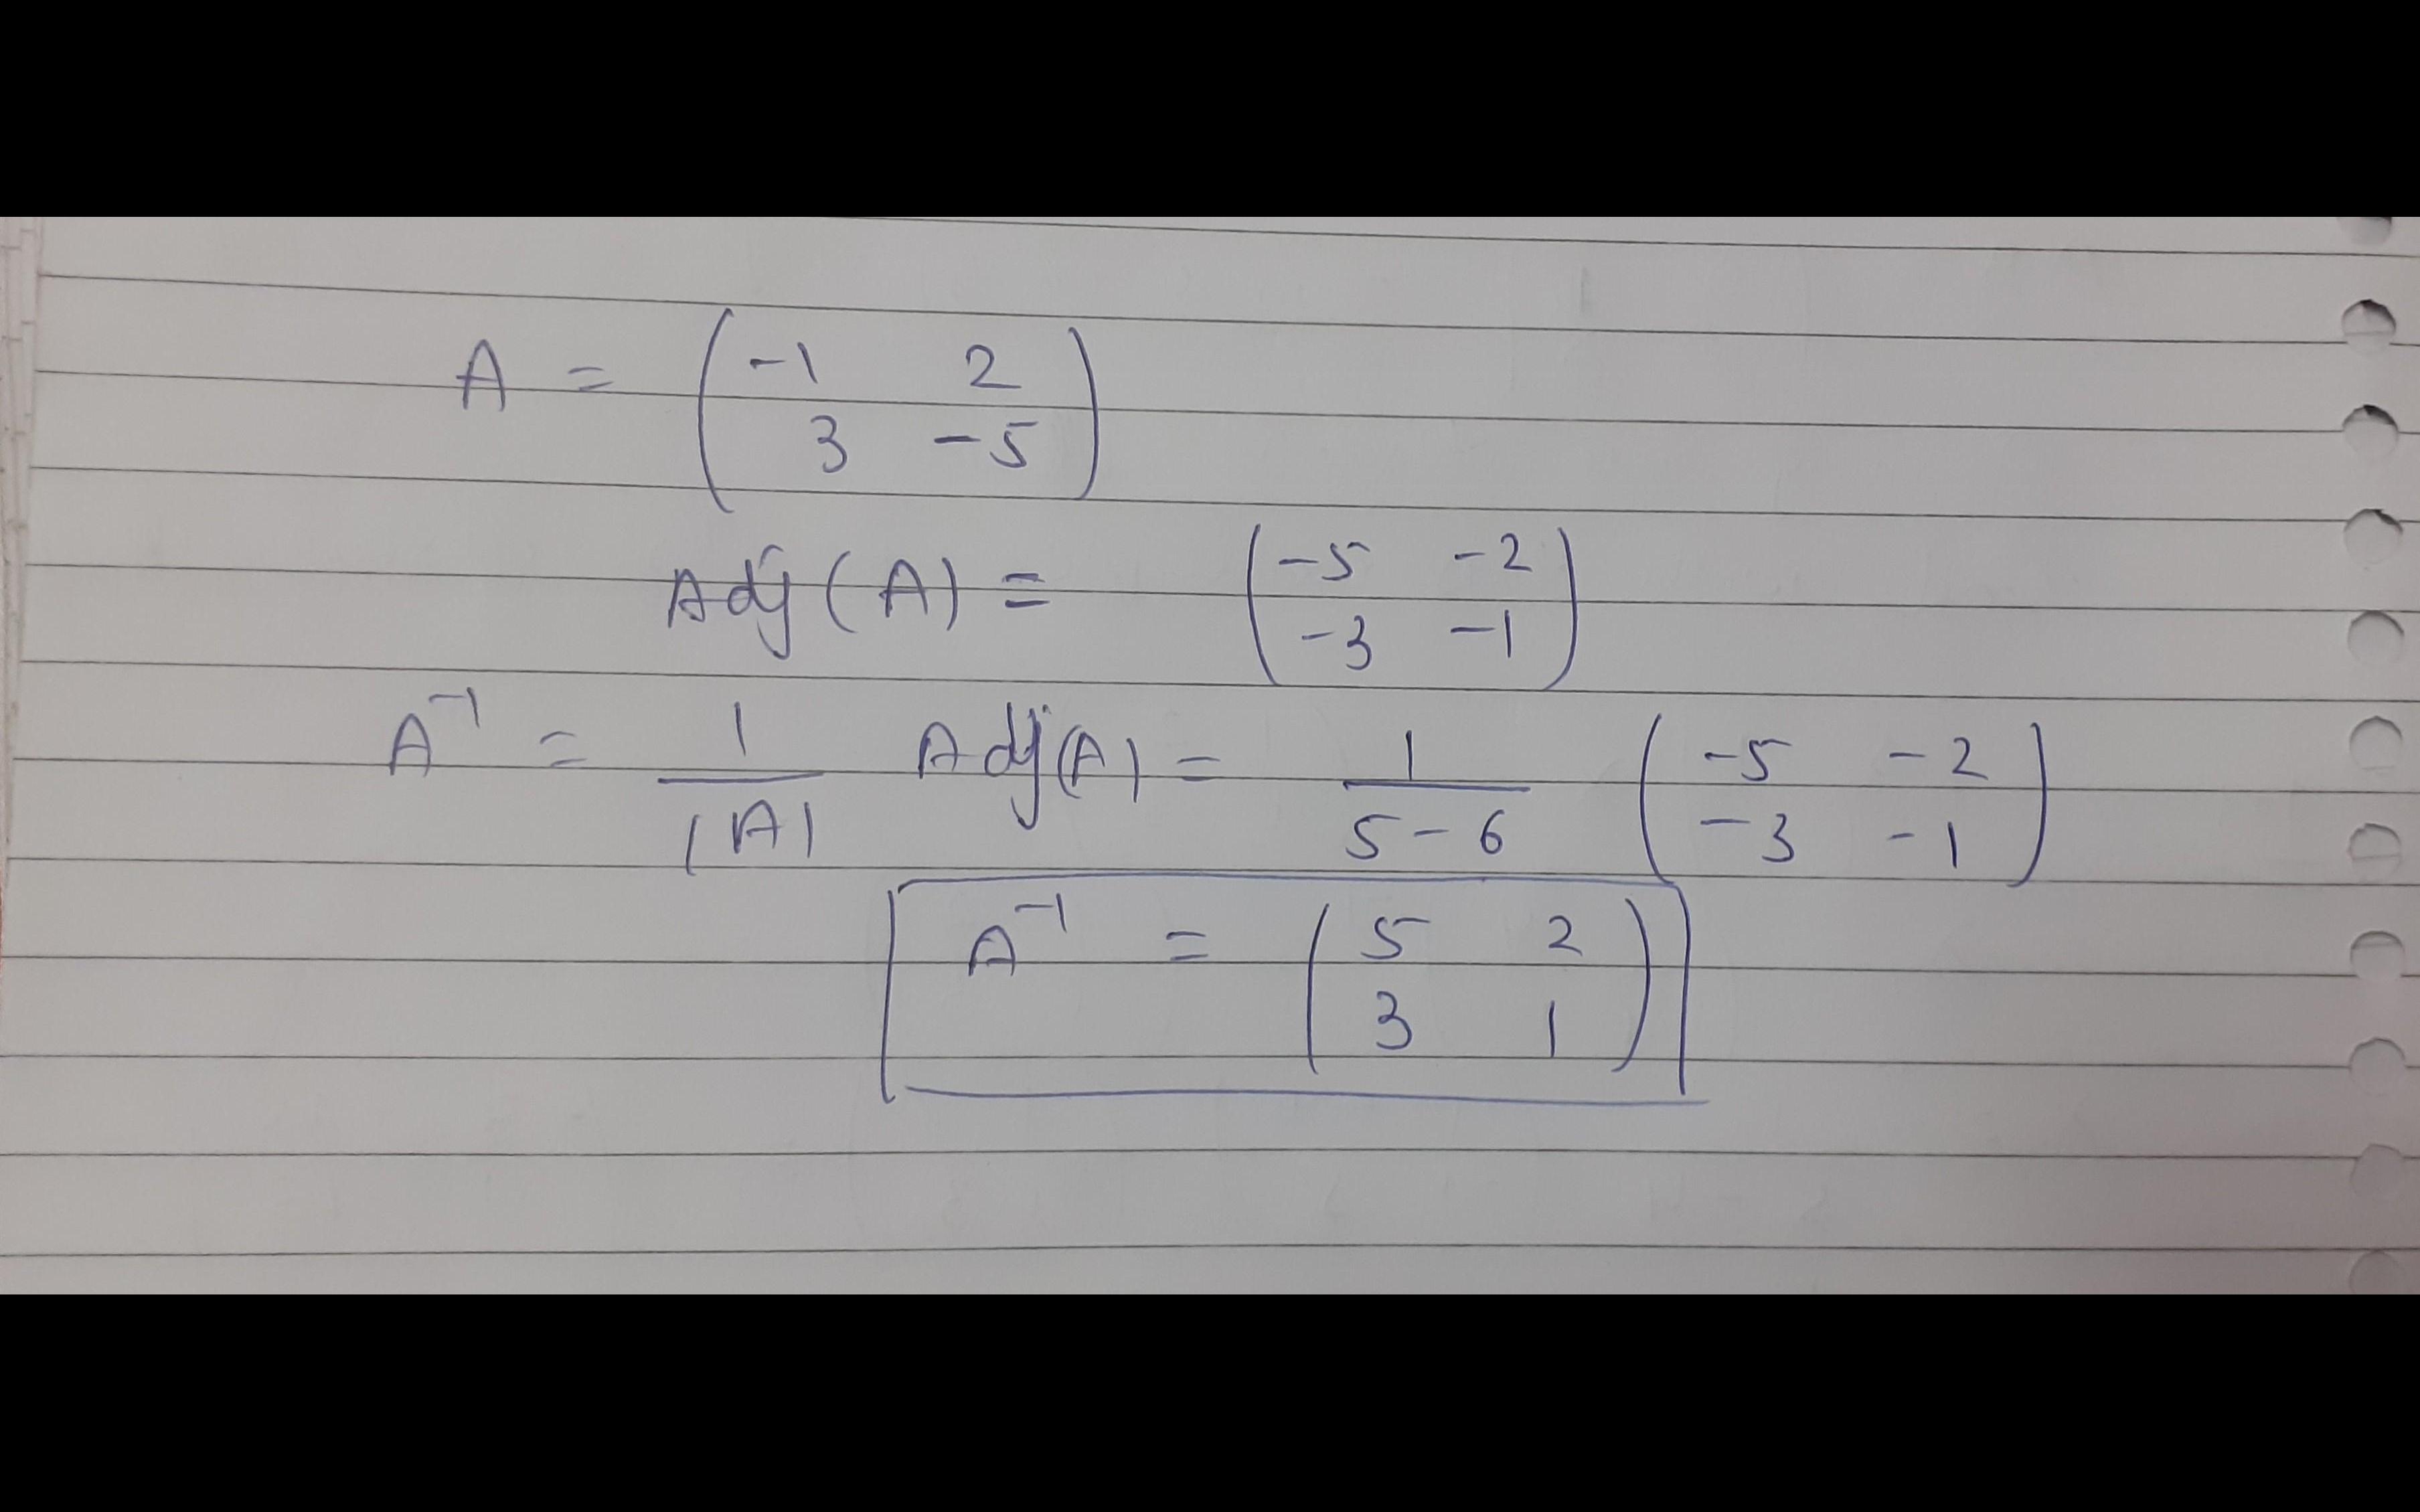 A = ( -1 2
3 -5 )
Adj (A) = ( -5 -2
-3 -1 )
A⁻¹ = 1/|A| Adj(A) = 1/(5-6) ( -5 -2
-3 -1 )
A⁻¹ = ( 5 2
3 1 )